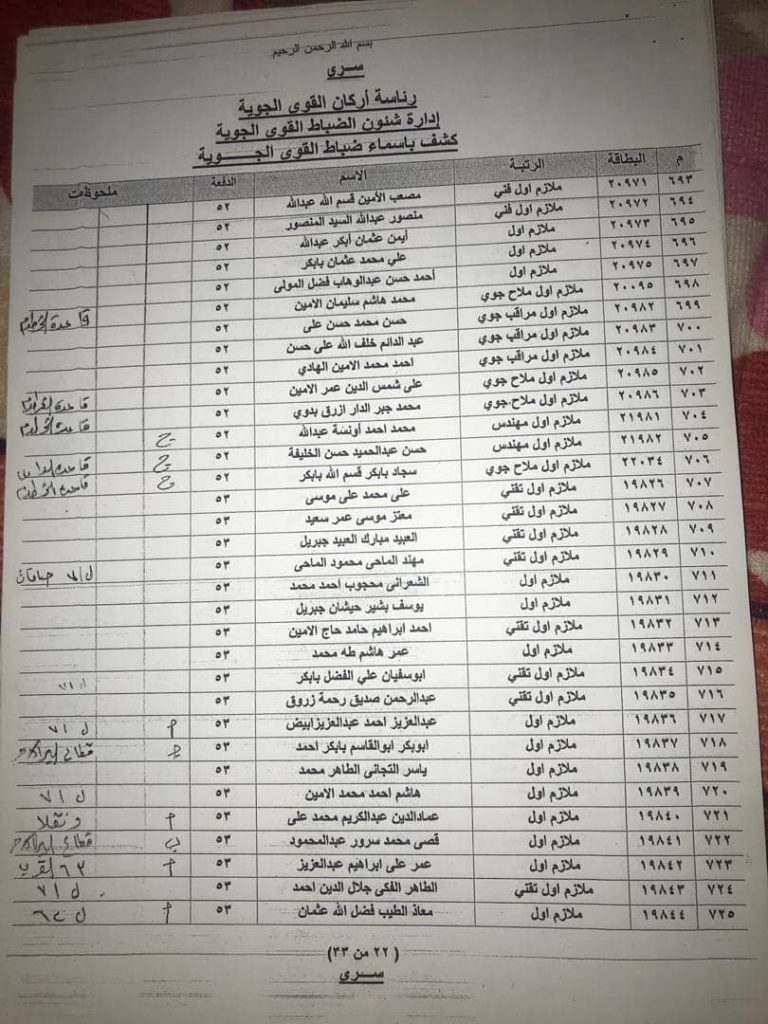 بسم الله الرحمن الرحيم
سري
رئاسة أركان القوى الجوية
إدارة شئون الضباط القوى الجوية
كشف باسماء ضباط القوى الجوية
م البطاقة الرتبة الاسم الدفعة ملحوظات
٦٩٣ ٢٠٩٧١ ملازم اول فني مصعب الأمين قسم الله عبدالله ٥٢
٦٩٤ ٢٠٩٧٢ ملازم اول فني منصور عبدالله السيد المنصور ٥٢
٦٩٥ ٢٠٩٧٣ ملازم اول أيمن عثمان أبكر عبدالله ٥٢
٦٩٦ ٢٠٩٧٤ ملازم اول علي محمد عثمان بابكر ٥٢
٦٩٧ ٢٠٩٧٥ ملازم اول أحمد حسن عبدالوهاب فضل المولى ٥٢
٦٩٨ ٢٠٠٩٥ ملازم اول ملاح جوي محمد هاشم سليمان الامين ٥٢
٦٩٩ ٢٠٩٨٢ ملازم اول مراقب جوي حسن محمد حسن على ٥٢ قاعدة الخرطوم
٧٠٠ ٢٠٩٨٣ ملازم اول مراقب جوي عبد الدائم خلف الله على حسن ٥٢
٧٠١ ٢٠٩٨٤ ملازم اول مراقب جوي احمد محمد الامين الهادي ٥٢
٧٠٢ ٢٠٩٨٥ ملازم اول ملاح جوي على شمس الدين عمر الامين ٥٢
٧٠٣ ٢٠٩٨٦ ملازم اول ملاح جوي محمد جبر الدار ازرق بدوي ٥٢ قاعدة
٧٠٤ ٢١٩٨١ ملازم اول مهندس محمد احمد أونسة عبدالله ٥٢ ح قاعدة
٧٠٥ ٢١٩٨٢ ملازم اول مهندس حسن عبدالحميد حسن الخليفة ٥٢ ح قاعدة
٧٠٦ ٢٢٠٣٤ ملازم اول ملاح جوي سجاد بابكر قسم الله بابكر ٥٢ ح قاعدة الخرطوم
٧٠٧ ١٩٨٢٦ ملازم اول تقني على محمد على موسى ٥٣
٧٠٨ ١٩٨٢٧ ملازم اول تقني معتز موسى عمر سعيد ٥٣
٧٠٩ ١٩٨٢٨ ملازم اول تقني العبيد مبارك العبيد جبريل ٥٣
٧١٠ ١٩٨٢٩ ملازم اول تقني مهند الماحى محمود الماحى ٥٣
٧١١ ١٩٨٣٠ ملازم اول الشعرانى محجوب احمد محمد ٥٣ ل/٧١
٧١٢ ١٩٨٣١ ملازم اول يوسف بشير حيشان جبريل ٥٣
٧١٣ ١٩٨٣٢ ملازم اول تقني احمد ابراهيم حامد حاج الامين ٥٣
٧١٤ ١٩٨٣٣ ملازم اول عمر هاشم طه محمد ٥٣
٧١٥ ١٩٨٣٤ ملازم اول تقني ابوسفيان علي الفضل بابكر ٥٣ ل ٧١
٧١٦ ١٩٨٣٥ ملازم اول تقني عبدالرحمن صديق رحمة زروق ٥٣
٧١٧ ١٩٨٣٦ ملازم اول عبدالعزيز احمد عبدالعزيزابيض ٥٣ م ل ٧١
٧١٨ ١٩٨٣٧ ملازم اول ابوبكر ابوالقاسم بابكر احمد ٥٣ قطاع
٧١٩ ١٩٨٣٨ ملازم اول ياسر التجانى الطاهر محمد ٥٣
٧٢٠ ١٩٨٣٩ ملازم اول هاشم احمد محمد الامين ٥٣ ل ٧١
٧٢١ ١٩٨٤٠ ملازم اول عمادالدين عبدالكريم محمد على ٥٣ م دنقلا
٧٢٢ ١٩٨٤١ ملازم اول قصى محمد سرور عبدالمحمود ٥٣ ب قطاع
٧٢٣ ١٩٨٤٢ ملازم اول عمر على ابراهيم عبدالعزيز ٥٣ م
٧٢٤ ١٩٨٤٣ ملازم اول تقني الطاهر الفكى جلال الدين احمد ٥٣ ل ٧١
٧٢٥ ١٩٨٤٤ ملازم اول معاذ الطيب فضل الله عثمان ٥٣ م
(٢٢ من ٣٣)
سري